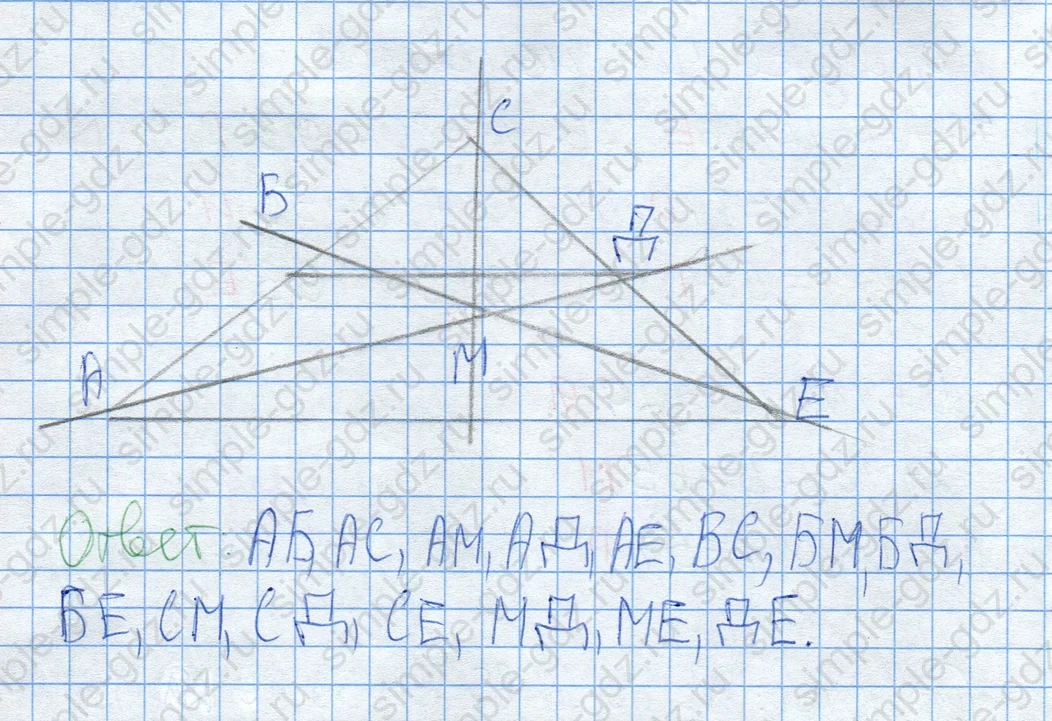 С
Б
Д
А
М
Е
Ответ: АБ, АС, АМ, АД, АЕ, ВС, БМ, БД,
БЕ, СМ, СД, СЕ, МД, МЕ, ДЕ.
simple-gdz.ru